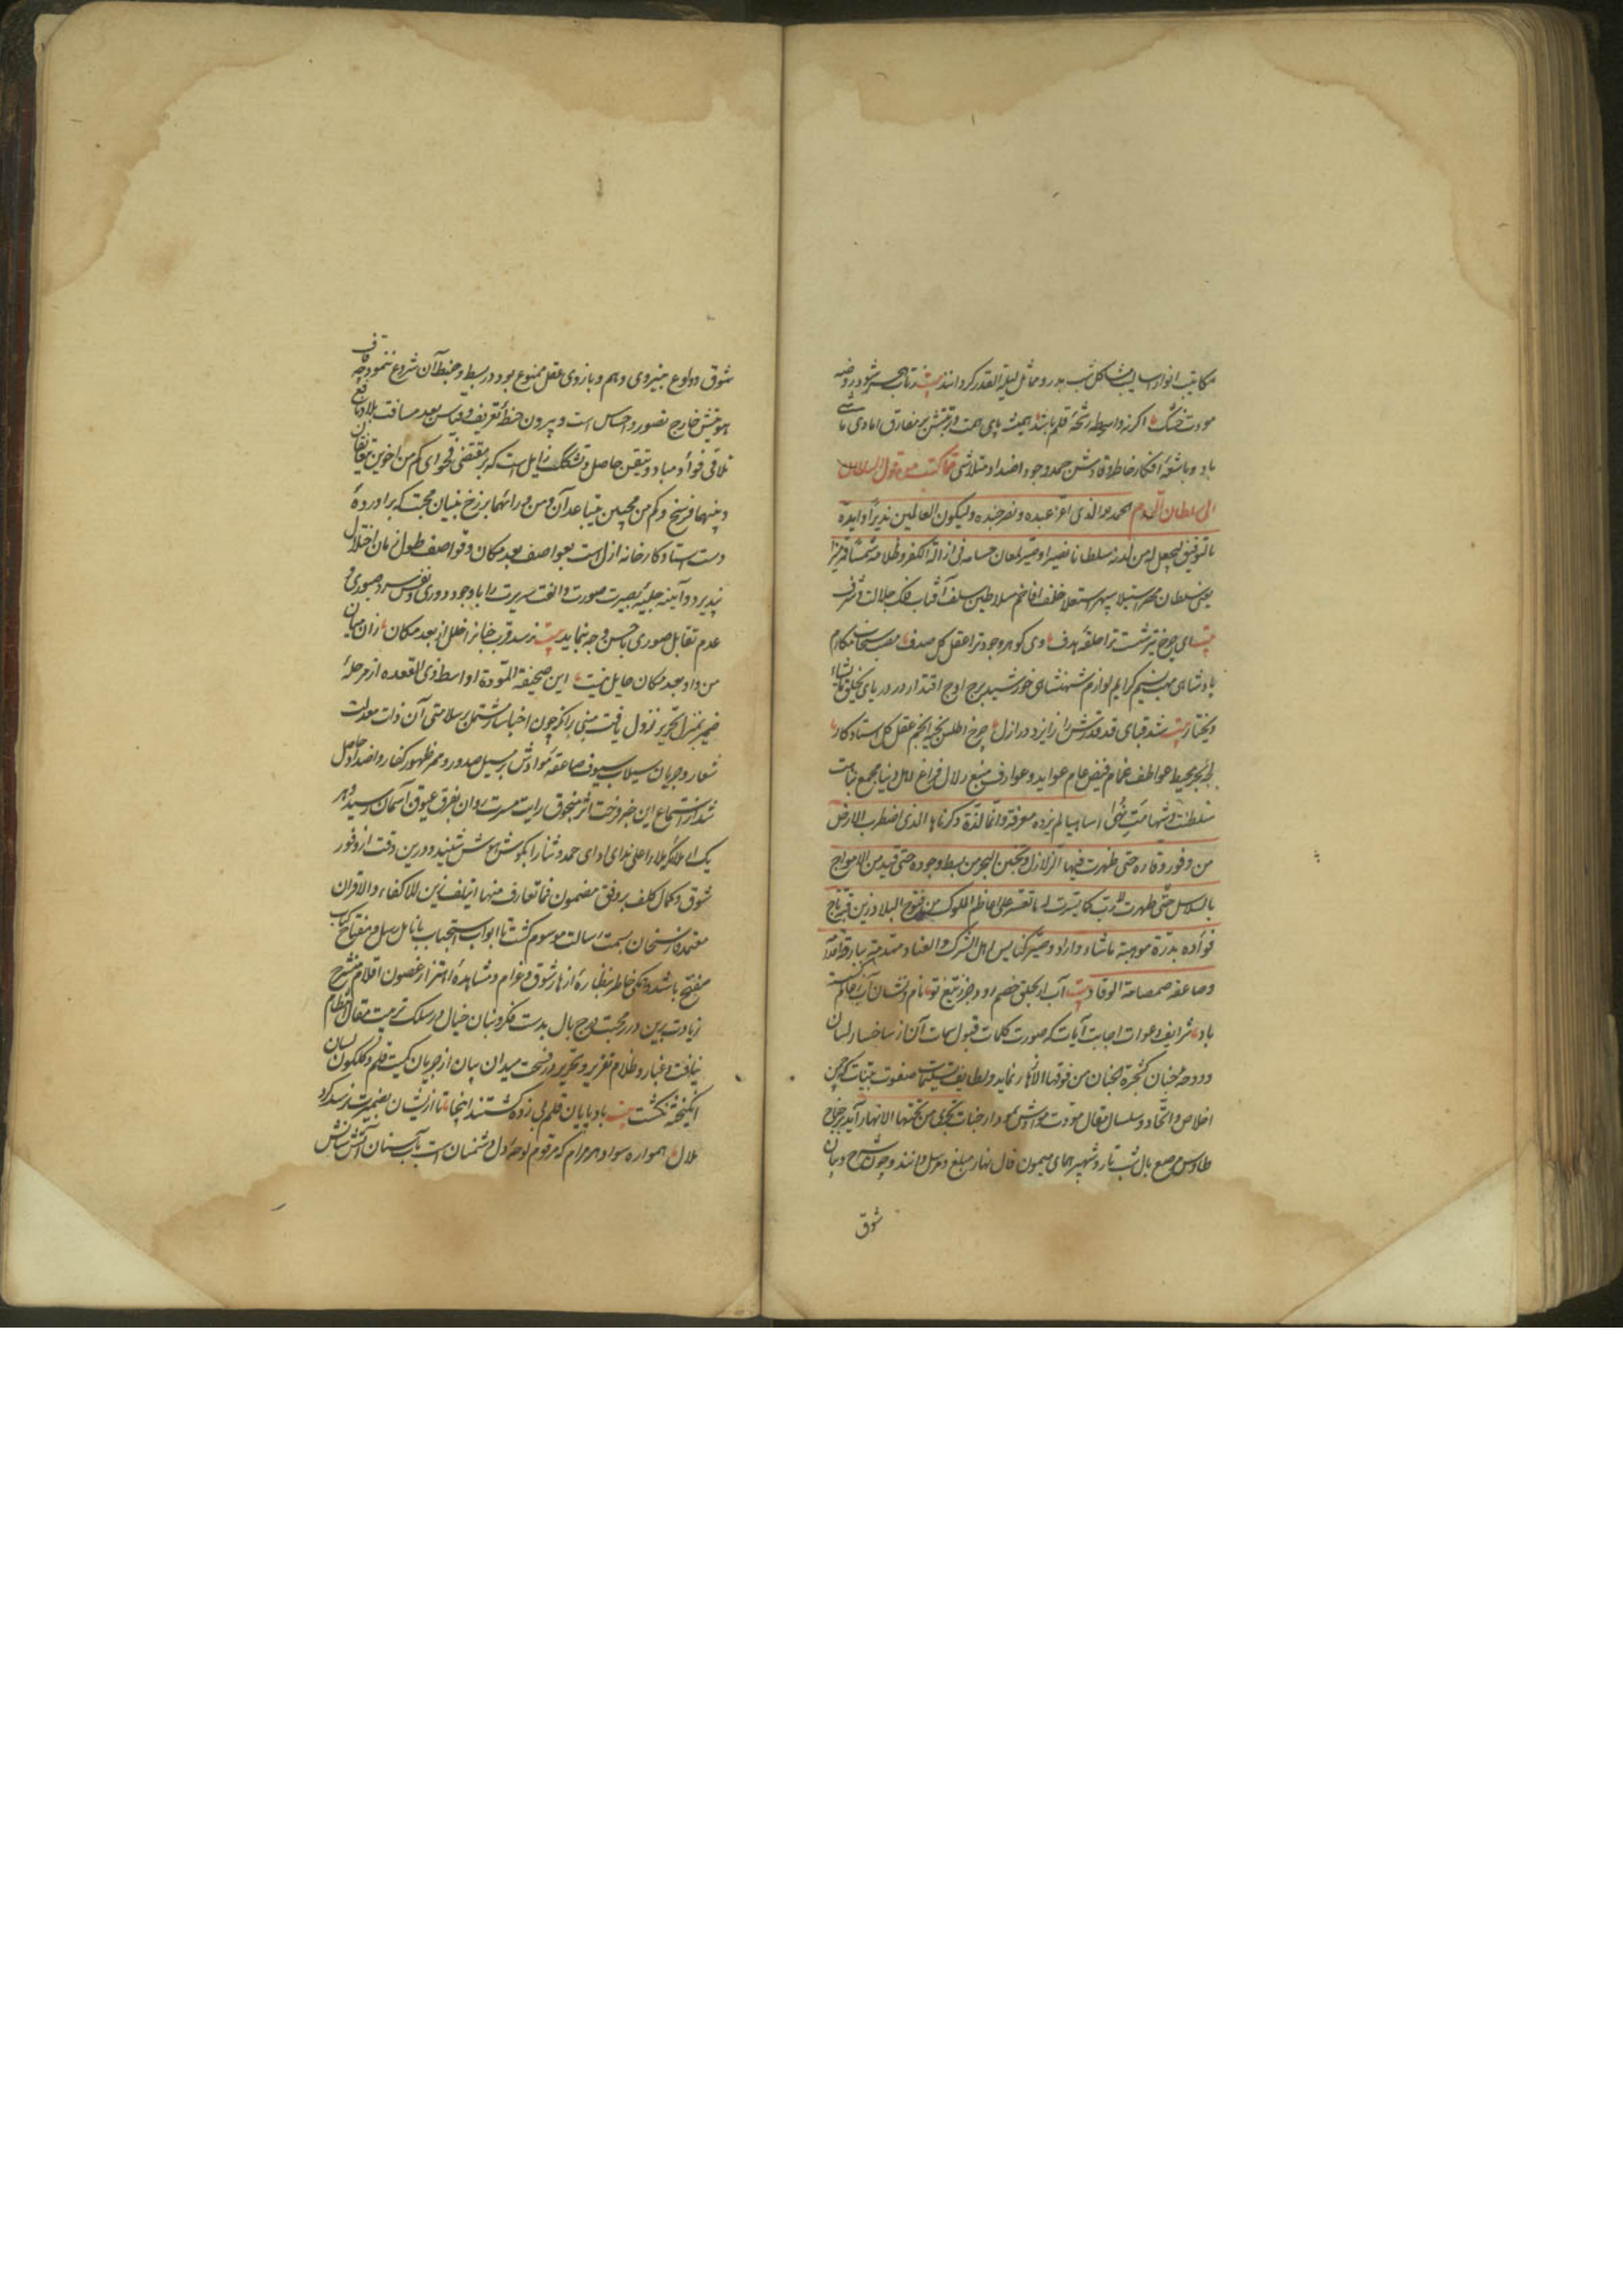 مکاتیب انوار اسالیب مشاکل شب بدر و مماثل لیلة القدر کردانند بیت نهر تا بحر شود روضه
مودت خشک اکر نه واسطه رشحهٔ قلم باشد همیشه پای همت در تبتش بر مفارق اعادی ماشی
باد و باشعهٔ افکار خاطر وقادش حمد وجود اضداد متلاشی مما کتب من قول السلطان
الی سلطان الروم الحمد لله الذی اعز عبده و نصر جنده و لیکون للعالمین نذیرا و ایده
بالتوفیق لیجعل له من لدنه سلطانا نصیرا و صیر لمعان حسامه فی ازالة الکفر و ظلامه شمسا و قمرا منیرا
یعنی سلطان مصر استیلا سپهر استعلا خلف افاخم سلاطین سلف آفتاب فلک جلالت و شرف
بیت ای چرخ تیر شست ترا حلقهٔ هدف وی کوهر وجود ترا عقل کل صدف
بادشاهی مهب نسیم کرایم لوازم شهنشاهی خورشید برج اوج اقتدار در دریای یخلق ما یشاء
و یختار بیت شد قبای قد قدرش را ز ایزد در ازل چرخ اطلس بخیه انجم عقل کل استاد کار
لجه بحر محیط عواطف غمام فیض عام عواید و عوارف منبع زلال فراغ اهل دنیا مجمع نباهت
سلطنت و شهامت نهی اسامیا لم یزده معرفة و انما لذة ذکرناها الذی اضطرب الارض
من وفور وقاره حتی ظهرت فیها الزلازل و تجنن البحر من بسط وجوده حتی قید من الامواج
بالسلاسل حتی ظهرت لارب کما یسرت له ما تعسر علی اعاظم الملوک من فتوح البلاد زین فرق تاج
فؤاده بدرة موهبة ما شاء و اراد و صیر کنایس اهل الشرک و العناد منهدمة ببارقة
و صاعقة صمصامة الوقاد بیت آب ار بحلق خصم رود جز ز تیغ تو نام و نشان آب ز عالم کسسته
باد شرایف دعوات اجابت آیات که صورت کلمات قبول سمات آن از شاخسار لسان
و دوحه جنان کشجرة الجنان من فوقها الازهار نماید و لطایف تسلیمات صفوت بینات که چمن
اخلاص و اتحاد و سلسال مقال مودت مؤداش بر مدار جنات تجری من تحتها الانهار آید بر جناح
طاوس مرصع بال شب تار و شهپر همای میمون فال نهار مبلغ و مرسل دانند و چون شرح و بیان
شوق
شوق و ولوع بنیروی وهم و بازوی عقل ممنوع بود در بسط و ضبط آن شروع ننمود چه
هویتش خارج تصور و احساس است و بیرون خطهٔ تعریف و قیاس بعد مسافت بلاد مانع
تلاقی فؤاد مباد و تیقن حاصل و تشکک زایل است که بر مقتضی فحوای کم من اخوین
و بینهما فرسخ و کم من محبین یتباعدان و من ورائهما برزخ بنیان محبت که بر آوردهٔ
دست استاد کارخانه ازل است بعواصف بعد مکان و قواصف طول زمان اختلال
نپذیرد و آئینه جلیهٔ بصیرت صورت و الفت سریرت را با وجود دوری نفوس صوری و
عدم تقابل صوری باحسن وجه نماید بیت نرسد قرب جنانرا خلل از بعد مکان زان میان
من و او بعد مکان حایل نیست این صحیفة المودة اواسط ذی القعده از مرحلهٔ
ضمیر بمنزل تحریر نزول یافت مبنی بر آنکه چون اخبار مشتمل بر سلامتی آن ذات معدلت
شعار و جریان سیلاب سیوف صاعقه مؤادش بر مسیل صدور و ممر ظهور کفار و اضداد حاصل
شد از استماع این خبر فرحت اثر منجوق رایت مسرت روان بفرق عیوق آسمان رسید و هر
یک از ملائک ملاء اعلی ندای ادای حمد و ثنا را بکوش هوش شنید و درین وقت از وفور
شوق و کمال کلف بر وفق مضمون فما تعارف منها ائتلف زین الاکفاء و الاقران
معتمده از سخنان بسمت رسالت موسوم کشت تا ابواب استحباب بانامل رسل و مفتاح کتاب
مفتح باشد و ریاض خاطر بنظارهٔ ازهار شوق و غرام و مشاهدهٔ اهتزاز غصون اقلام منشرح
زیادت برین درر محبت درج بال بدست فکر و بنان خیال در سلک تربیت مقال انتظام
نیافت و غبار و ظلام تقریر و تحریر در فسحت میدان بیان از جریان کمیت قلم و کلکون لسان
انکیخته نکشت بیت باد پایان قلم پی زده کشتند اینجا تا از یشان بضمیرت نرسد کرد
ملال همواره سواد هر مرام که مرقوم لوحهٔ دل دشمنان است بآب سنان آتش نشانش